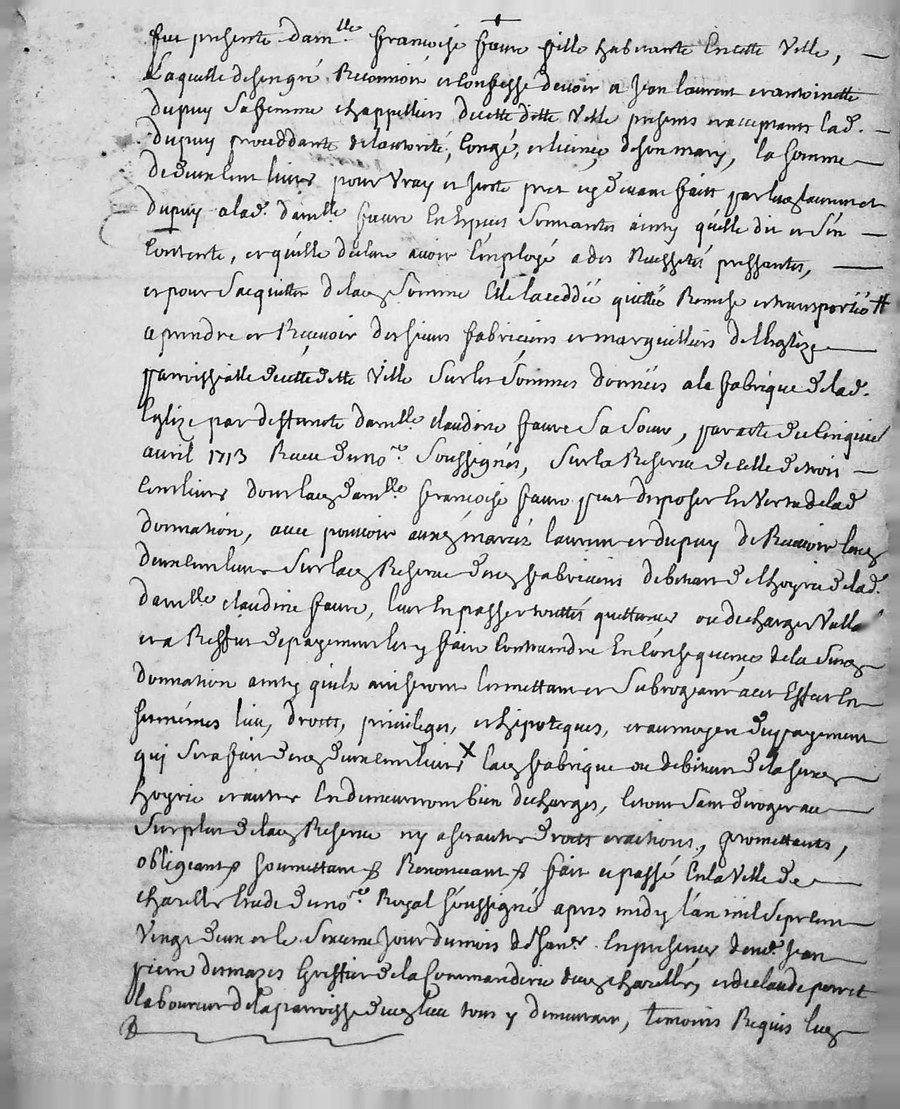 fut presente dam.lle francoise faure fille habitante en cette ville,
Laquelle de son gré Reconnoit et confesse devoir a Jean laurent et antoinette
dupuy sa femme chappelliers de cette ditte ville presents et acceptants lad.
dupuy procedante de lautorité, congé, et licence de son mary, la somme
de deux cent livres pour vray et juste pret cy devant faitt par lesq laurent et
dupuy a lad. dam.lle faure en especes sonnantes ainsy quelle dit et s'en
contente, et quelle declare avoir lemployé a des Necessités pressantes,
et pour sacquitter de lad somme Elle a ceddée quittée Remise et transportée #
a prendre et Recevoir des sieurs fabriciens et marguilliers de lEglize
parroissialle de cette ditte ville sur les sommes données a la fabrique de lad.
Eglize par deffunte dam.lle claudine faure sa sœur, par acte du cinquie
avril 1713 Receu du no.re soussigné, sur la Reserve de celle de trois
cent livres dont lad dam.lle francoise faure peut disposer en vertu de lad
donnation, avec pouvoir auxd mariés laurent et dupuy de Recevoir lesd
deux cent livres sur lad Reserve desd fabriciens debiteurs de lhoyrie de lad.
dam.lle claudine faure, leur en passer touttes quittances ou decharges vall.
et a Reffus de payement les y faire contraindre En consequence de la susd
donnation ainsy quils aviseront les mettant et subrogeant a cet Effet en
ses mêmes lieu, droits, privileges, et hipoteques, et au moyen du payement
qui sera fait desd deux cent livres X lad fabrique ou debiteurs de la susd
hoyrie et autres En demeureront bien decharges, le tout sans deroger au
surplus de lad Reserve ny a ses autres droits et actions, promettants,
obligeant & soumettant & Renonceant & fait et passé En la ville de
chazelles Etude du no.re Royal soussigné apres midy lan mil sept cent
vingt deux et le seizieme jour du mois de Janv.r En presence de m.e Jean
pierre desmazes Greffier de la Commanderie dud chazelles, et de claude perret
laboureur de la parroisse dud lieu tous y demeurants, temoins Requis lesd